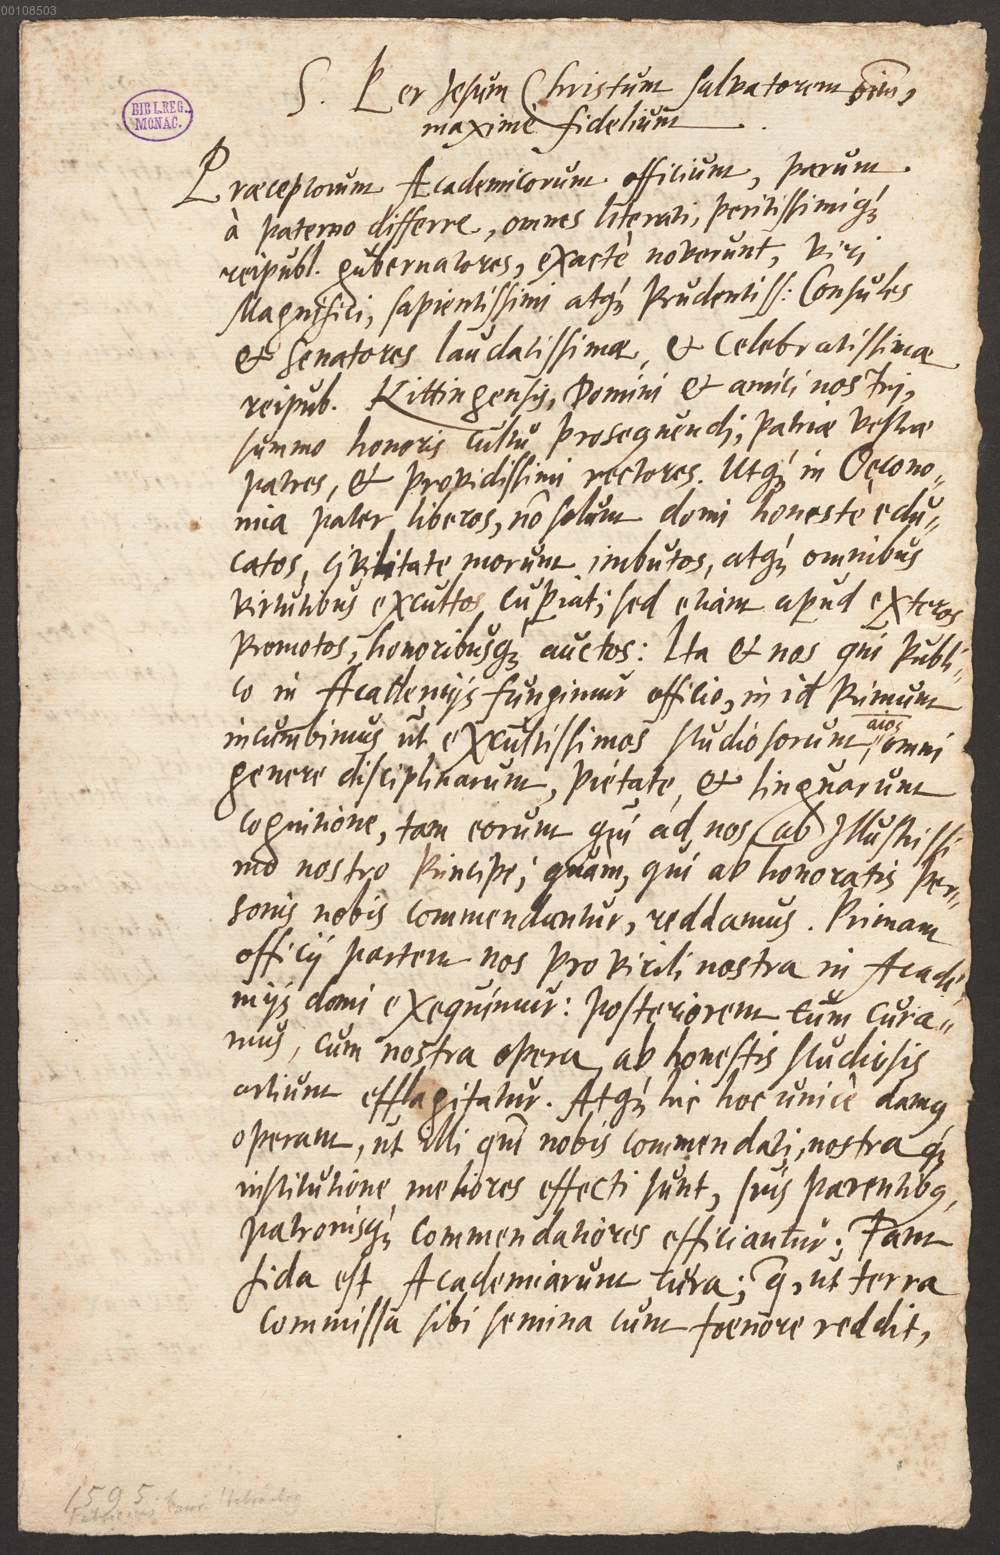 00108503
BIBL.REG.
MONAC.
S. Per Jesum Christum salvatorem oīm,
maximè fidelium
Præceptorum Academicorum officium, parum
à paterno differre, omnes literati, peritissimiq́₃
reipubl. gubernatores, exactè noverunt, Viri
Magnifici, sapientissimi atq́₃ Prudentiss: Consules
& Senatores laudatissimæ, & Celebratissimæ
reipub. Kittingensis, Domini & amici nostri,
summo honoris cultu prosequendi, patriæ vestræ
patres, & providissimi rectores. Utq́₃ in Oecono„
mia pater liberos, nō solum domi honestè edu„
catos, civilitate morum imbutos, atq́₃ omnibus
virtutibus excultos cupiat; sed etiam apud exteros
promotos, honoribusq́₃ auctos: Ita & nos qui publi„
co in Academijs fungimur officio, in id primum
incumbimus ut excultissimos studiosorum aīos omni
genere disciplinarum, pietate, & linguarum
cognitione, tam eorum qui ad nos (ab) Illustrissi
mo nostro Principe; quàm, qui ab honoratis per„
sonis nobis commendantur, reddamus. Primam
officij partem nos pro virili nostra in Acade„
mijs domi exequimur: posteriorem tum cura„
mus, cum nostra opera ab honestis studiosis
artium efflagitatur. Atq́₃ hic hoc unicè damus
operam, ut illi qui nobis commendati, nostraq́₃
institutione meliores effecti sunt, suis parentibus,
patronisq́₃ commendatiores efficiantur; Tam
fida est Academiarum cura; q̄, ut terra
commissa sibi semina cum foenore reddit,
1595